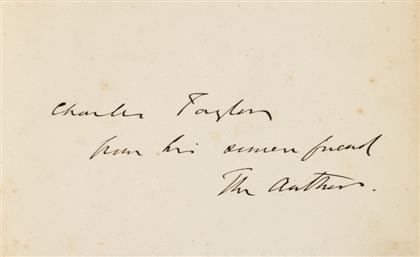 Charles Taylor
from his sincere friend
The Author.